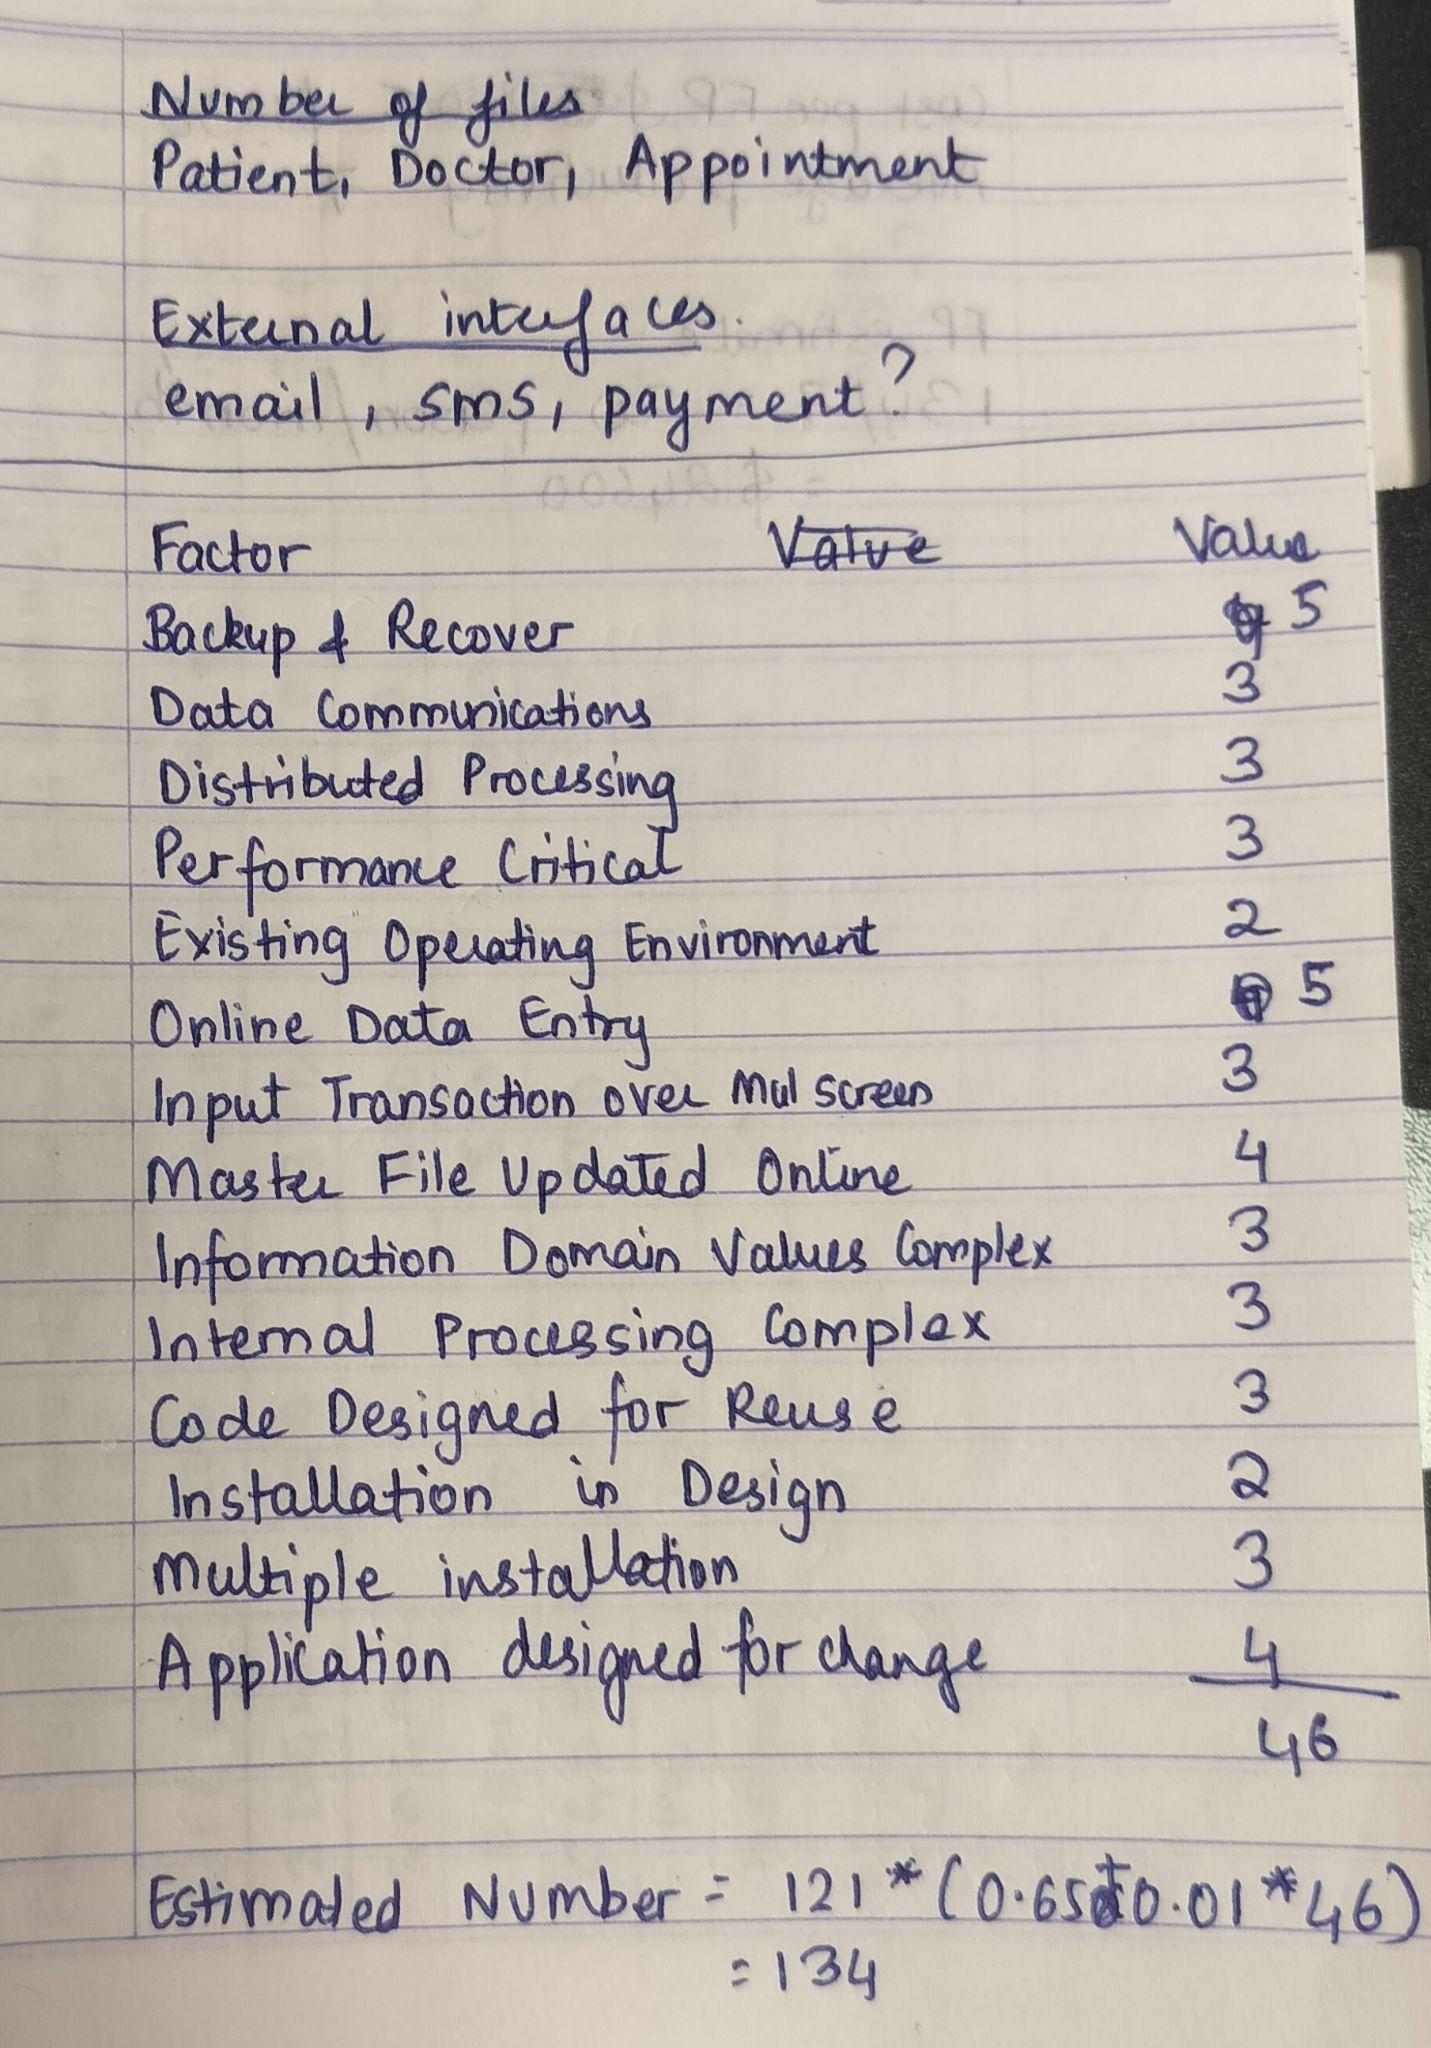 Number of files
Patient, Doctor, Appointment
External interfaces.
email, sms, payment?
Factor Value Value
Backup & Recover 5
Data Communications 3
Distributed Processing 3
Performance Critical 3
Existing Operating Environment 2
Online Data Entry 5
Input Transaction over Mul screen 3
Master File Updated Online 4
Information Domain Values Complex 3
Internal Processing Complex 3
Code Designed for Reuse 3
Installation in Design 2
Multiple installation 3
Application designed for change 4
46
Estimated Number = 121 * (0.65+0.01 * 46)
= 134